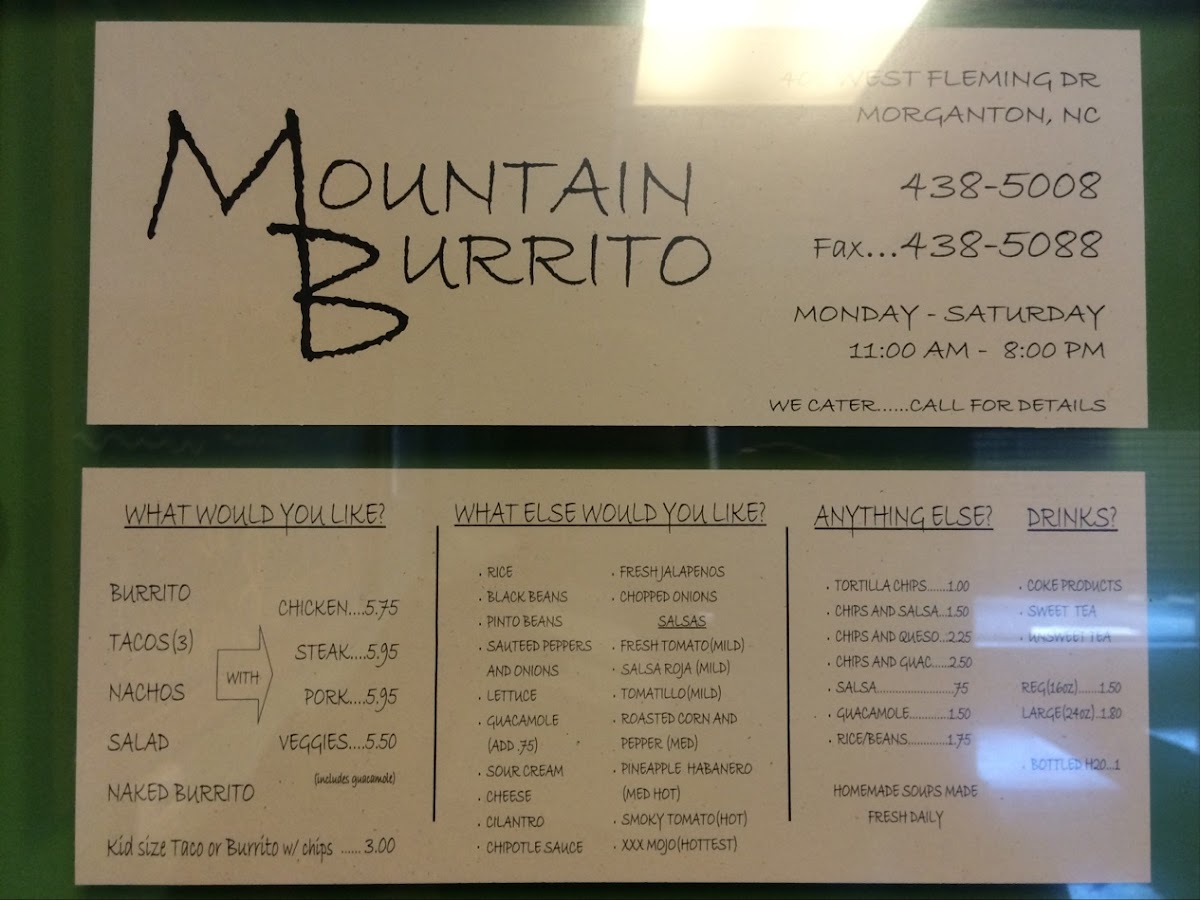 MOUNTAIN
BURRITO
WEST FLEMING DR
MORGANTON, NC
438-5008
Fax...438-5088
MONDAY - SATURDAY
11:00 AM - 8:00 PM
WE CATER......CALL FOR DETAILS
WHAT WOULD YOU LIKE?
BURRITO
TACOS(3)
NACHOS
SALAD
NAKED BURRITO
WITH
CHICKEN....5.75
STEAK....5.95
PORK....5.95
VEGGIES....5.50
(includes guacamole)
Kid size Taco or Burrito w/ chips ...... 3.00
WHAT ELSE WOULD YOU LIKE?
. RICE
. BLACK BEANS
. PINTO BEANS
. SAUTEED PEPPERS
AND ONIONS
. LETTUCE
. GUACAMOLE
(ADD .75)
. SOUR CREAM
. CHEESE
. CILANTRO
. CHIPOTLE SAUCE
. FRESH JALAPENOS
. CHOPPED ONIONS
SALSAS
. FRESH TOMATO(MILD)
. SALSA ROJA (MILD)
. TOMATILLO(MILD)
. ROASTED CORN AND
PEPPER (MED)
. PINEAPPLE HABANERO
(MED HOT)
. SMOKY TOMATO(HOT)
. XXX MOJO(HOTTEST)
ANYTHING ELSE?
. TORTILLA CHIPS.......1.00
. CHIPS AND SALSA..1.50
. CHIPS AND QUESO...2.25
. CHIPS AND GUAC......2.50
. SALSA.........................75
. GUACAMOLE.............1.50
. RICE/BEANS............1.75
HOMEMADE SOUPS MADE
FRESH DAILY
DRINKS?
. COKE PRODUCTS
. SWEET TEA
. UNSWEET TEA
REG(16oz)......1.50
LARGE(24oz)..1.80
. BOTTLED H20...1